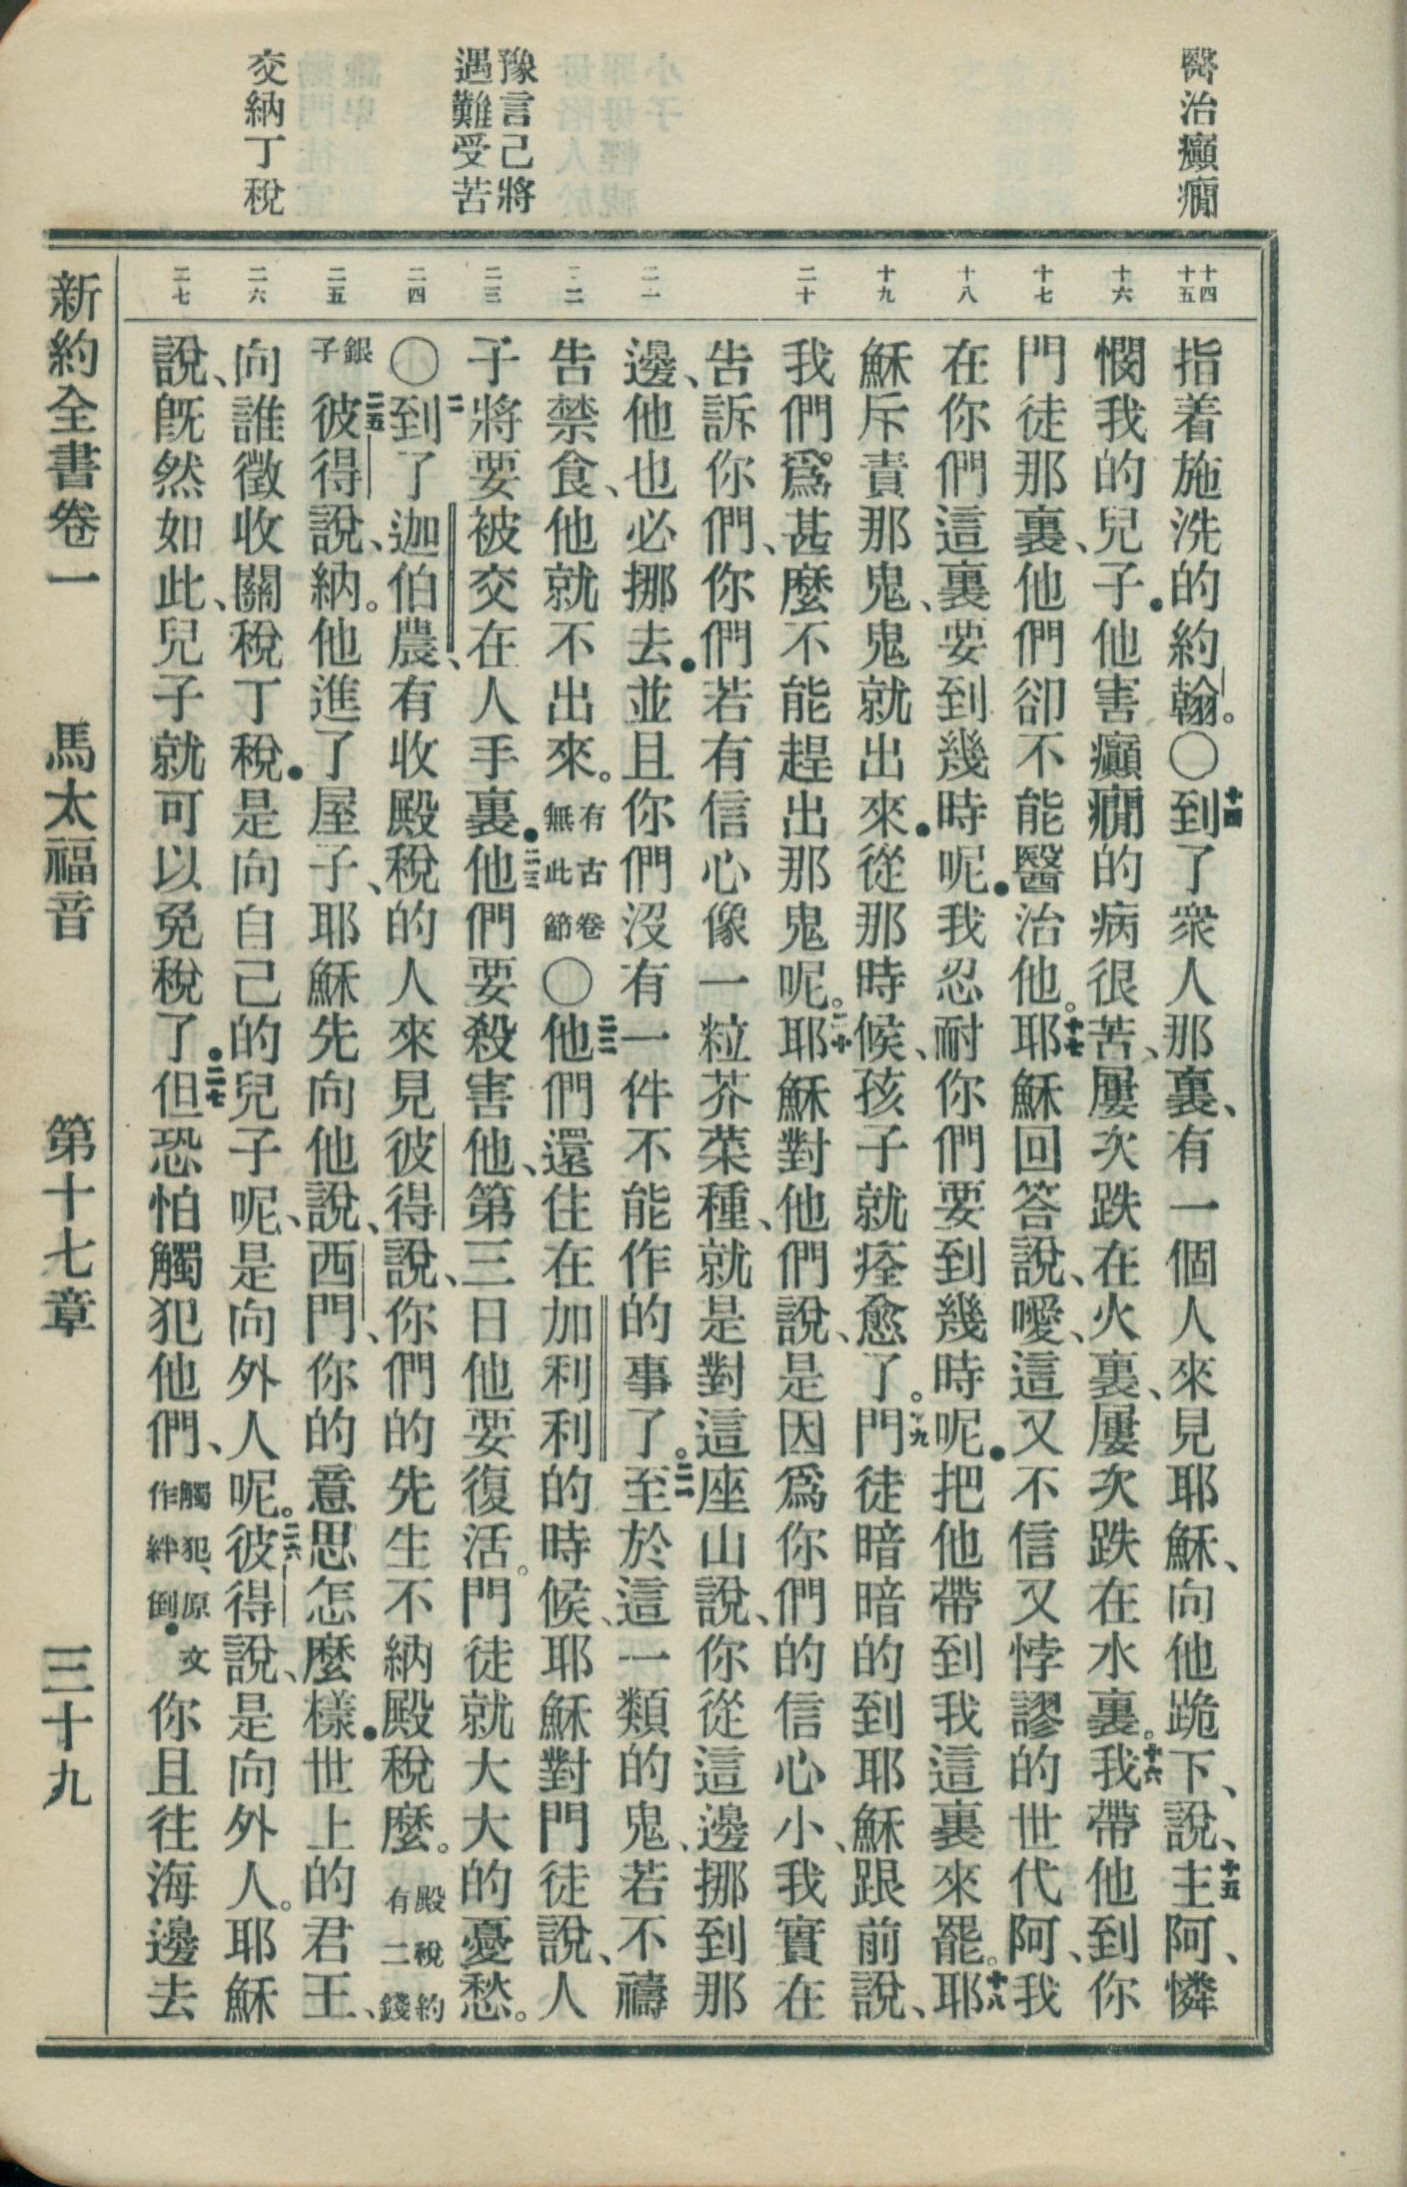 醫治癲癇
豫言己將
遇難受苦
交納丁稅
十四
十五
十六
十七
十八
十九
二十
二一
二二
二三
二四
二五
二六
二七
指着施洗的約翰。〇十四到了衆人那裏、有一個人來見耶穌、向他跪下、說、十五主阿、憐
憫我的兒子．他害癲癇的病很苦、屢次跌在火裏、屢次跌在水裏。十六我帶他到你
門徒那裏、他們卻不能醫治他。十七耶穌回答說、噯、這又不信又悖謬的世代阿、我
在你們這裏要到幾時呢．我忍耐你們要到幾時呢．把他帶到我這裏來罷。十八耶
穌斥責那鬼、鬼就出來．從那時候、孩子就痊愈了。十九門徒暗暗的到耶穌跟前說、
我們爲甚麼不能趕出那鬼呢。二十耶穌對他們說、是因爲你們的信心小、我實在
告訴你們、你們若有信心像一粒芥菜種、就是對這座山說、你從這邊挪到那
邊、他也必挪去．並且你們沒有一件不能作的事了。二一至於這一類的鬼、若不禱
告禁食、他就不出來。有古卷無此節〇二二他們還住在加利利的時候、耶穌對門徒說、人
子將要被交在人手裏．二三他們要殺害他、第三日他要復活。門徒就大大的憂愁。
〇二四到了迦伯農、有收殿稅的人來見彼得說、你們的先生不納殿稅麼。殿稅約有二錢
銀子二五彼得說、納。他進了屋子、耶穌先向他說、西門、你的意思怎麼樣．世上的君王、
向誰徵收關稅丁稅．是向自己的兒子呢、是向外人呢。二六彼得說、是向外人。耶穌
說、旣然如此、兒子就可以免稅了．二七但恐怕觸犯他們、觸犯、原文作絆倒．你且往海邊去
新約全書卷一　馬太福音　第十七章　三十九